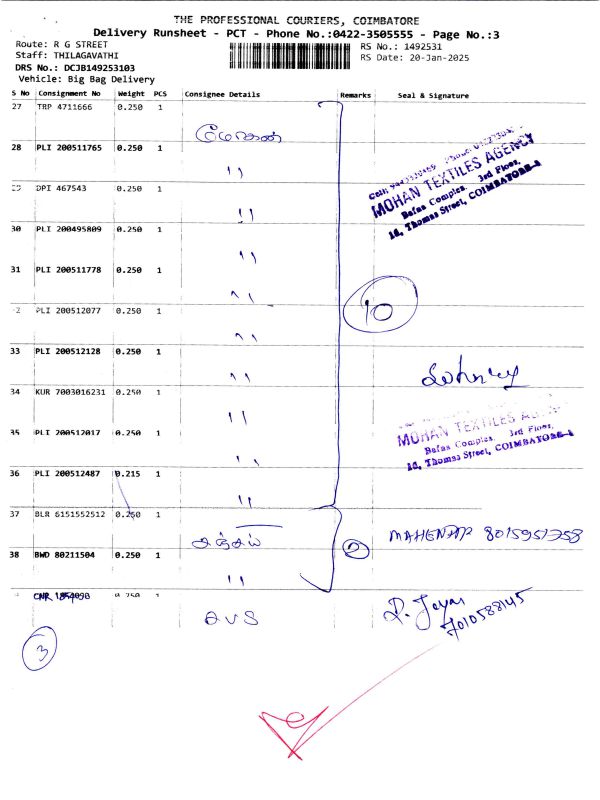 THE PROFESSIONAL COURIERS, COIMBATORE
Delivery Runsheet - PCT - Phone No.:0422-3505555 - Page No.:3
Route: R G STREET
Staff: THILAGAVATHI
DRS No.: DCJB149253103
Vehicle: Big Bag Delivery
RS No.: 1492531
RS Date: 20-Jan-2025
S No Consignment No Weight PCS Consignee Details Remarks Seal & Signature
27 TRP 4711666 0.250 1
மோகன்
28 PLI 200511765 0.250 1 "
MOHAN TEXTILES AGENCY
Bafna Complex. 3rd Floor,
16, Thomas Street, COIMBATORE-1
29 DPI 467543 0.250 1 "
30 PLI 200495809 0.250 1 "
31 PLI 200511778 0.250 1 "
10
PLI 200512077 0.250 1 "
33 PLI 200512128 0.250 1 "
34 KUR 7003016231 0.250 1 "
MOHAN TEXTILES
Bafna Complex. 3rd Floor,
16, Thomas Street, COIMBATORE-1
35 PLI 200512017 0.250 1 "
36 PLI 200512487 0.215 1 "
37 BLR 6151552512 0.250 1
2 8015951358
38 BWD 80211504 0.250 1 "
CNR 1854090 0.250 1
AVS
R. Jeyar
7010588145
3